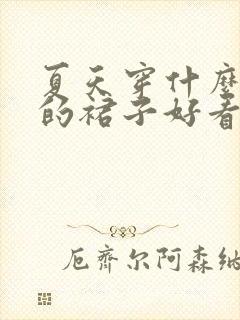 夏天穿什麼
的裙子好看
厄齊尔阿森纳